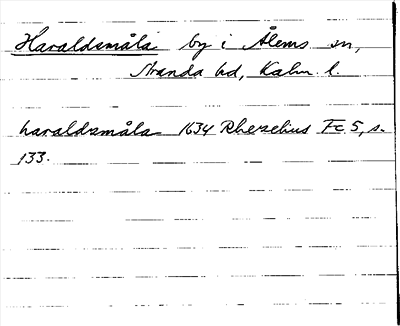 Haraldsmåla by i Ålems sn,
Stranda hd, Kalm. l.
haraldsmåla 1634 Rhezelius Fc 5, s.
133.